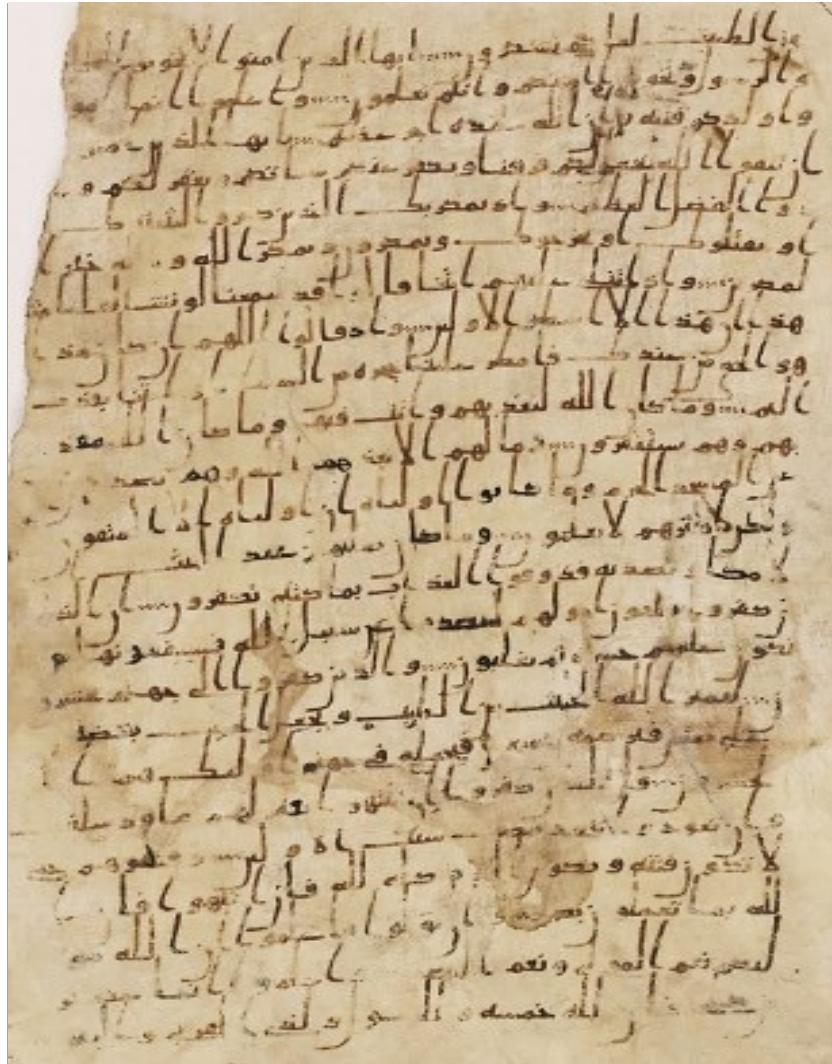 من الطيبت لعلكم تشكرون يايها الذين امنوا لا تخونوا الله
والرسول وتخونوا امنتكم وانتم تعلمون واعلموا انما امو
لكم واولدكم فتنه وان الله عنده اجر عظيم يايها الذين امنوا
ان تتقوا الله يجعل لكم فرقنا ويكفر عنكم سياتكم ويغفر لكم و
الله ذو الفضل العظيم واذ يمكر بك الذين كفروا ليثبتوك
او يقتلوك او يخرجوك ويمكرون ويمكر الله والله خير ا
لمكرين واذا تتلى عليهم ايتنا قالوا قد سمعنا لو نشا لقلنا مثل
هذا ان هذا الا اسطير الاولين واذ قالوا اللهم ان كان هذا
هو الحق من عندك فامطر علينا حجره من السما او ائتنا بعذب
اليم وما كان الله ليعذبهم وانت فيهم وما كان الله معذ
بهم وهم يستغفرون وما لهم الا يعذبهم الله وهم يصدون
عن المسجد الحرم وما كانوا اولياه ان اولياه الا المتقون
ولكن اكثرهم لا يعلمون وما كان صلتهم عند البيت
الا مكا وتصديه فذوقوا العذاب بما كنتم تكفرون ان الذ
ين كفروا ينفقون امولهم ليصدوا عن سبيل الله فسينفقونها ثم
تكون عليهم حسره ثم يغلبون والذين كفروا الى جهنم يحشرو
ن ليميز الله الخبيث من الطيب ويجعل الخبيث بعضه
على بعض فيركمه جميعا فيجعله في جهنم اوليك هم ا
لخسرون قل للذين كفروا ان ينتهوا يغفر لهم ما قد سلف
وان يعودوا فقد مضت سنت الاولين وقتلوهم حتى
لا تكون فتنه ويكون الدين كله لله فان انتهوا فان ا
لله بما يعملون بصير وان تولوا فاعلموا ان الله مو
ليكم نعم المولى ونعم النصير واعلموا انما غنمتم من
شي فان لله خمسه وللرسول ولذي القربى واليتمى